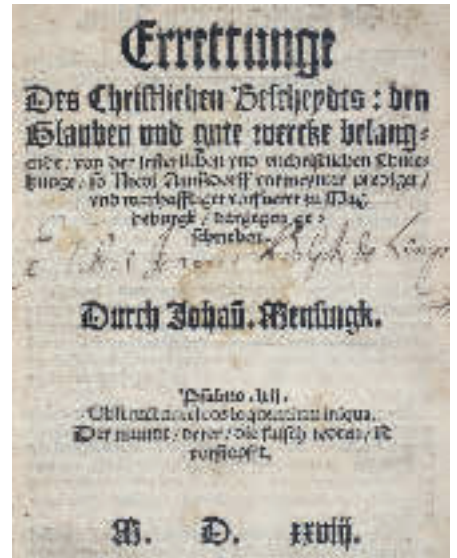 Errettunge
Des Christlichen Bescheydts: den
Glauben vnd gute wercke belang-
ende/ von der lesterlichen vnd vnchristlichen
so Nicol Amßdorff vormeynter prediger/
vnd warhafftiger vorfuerer zu Mag
deburgk/ dargegen ge-
schrieben.
Durch Johañ. Mensingk.
Psalmo .lxij.
Obstructum est os loquentium iniqua.
Der mundt/ derer/ die falsch reden/ ist
vorstopfft.
M. D. xxviij.